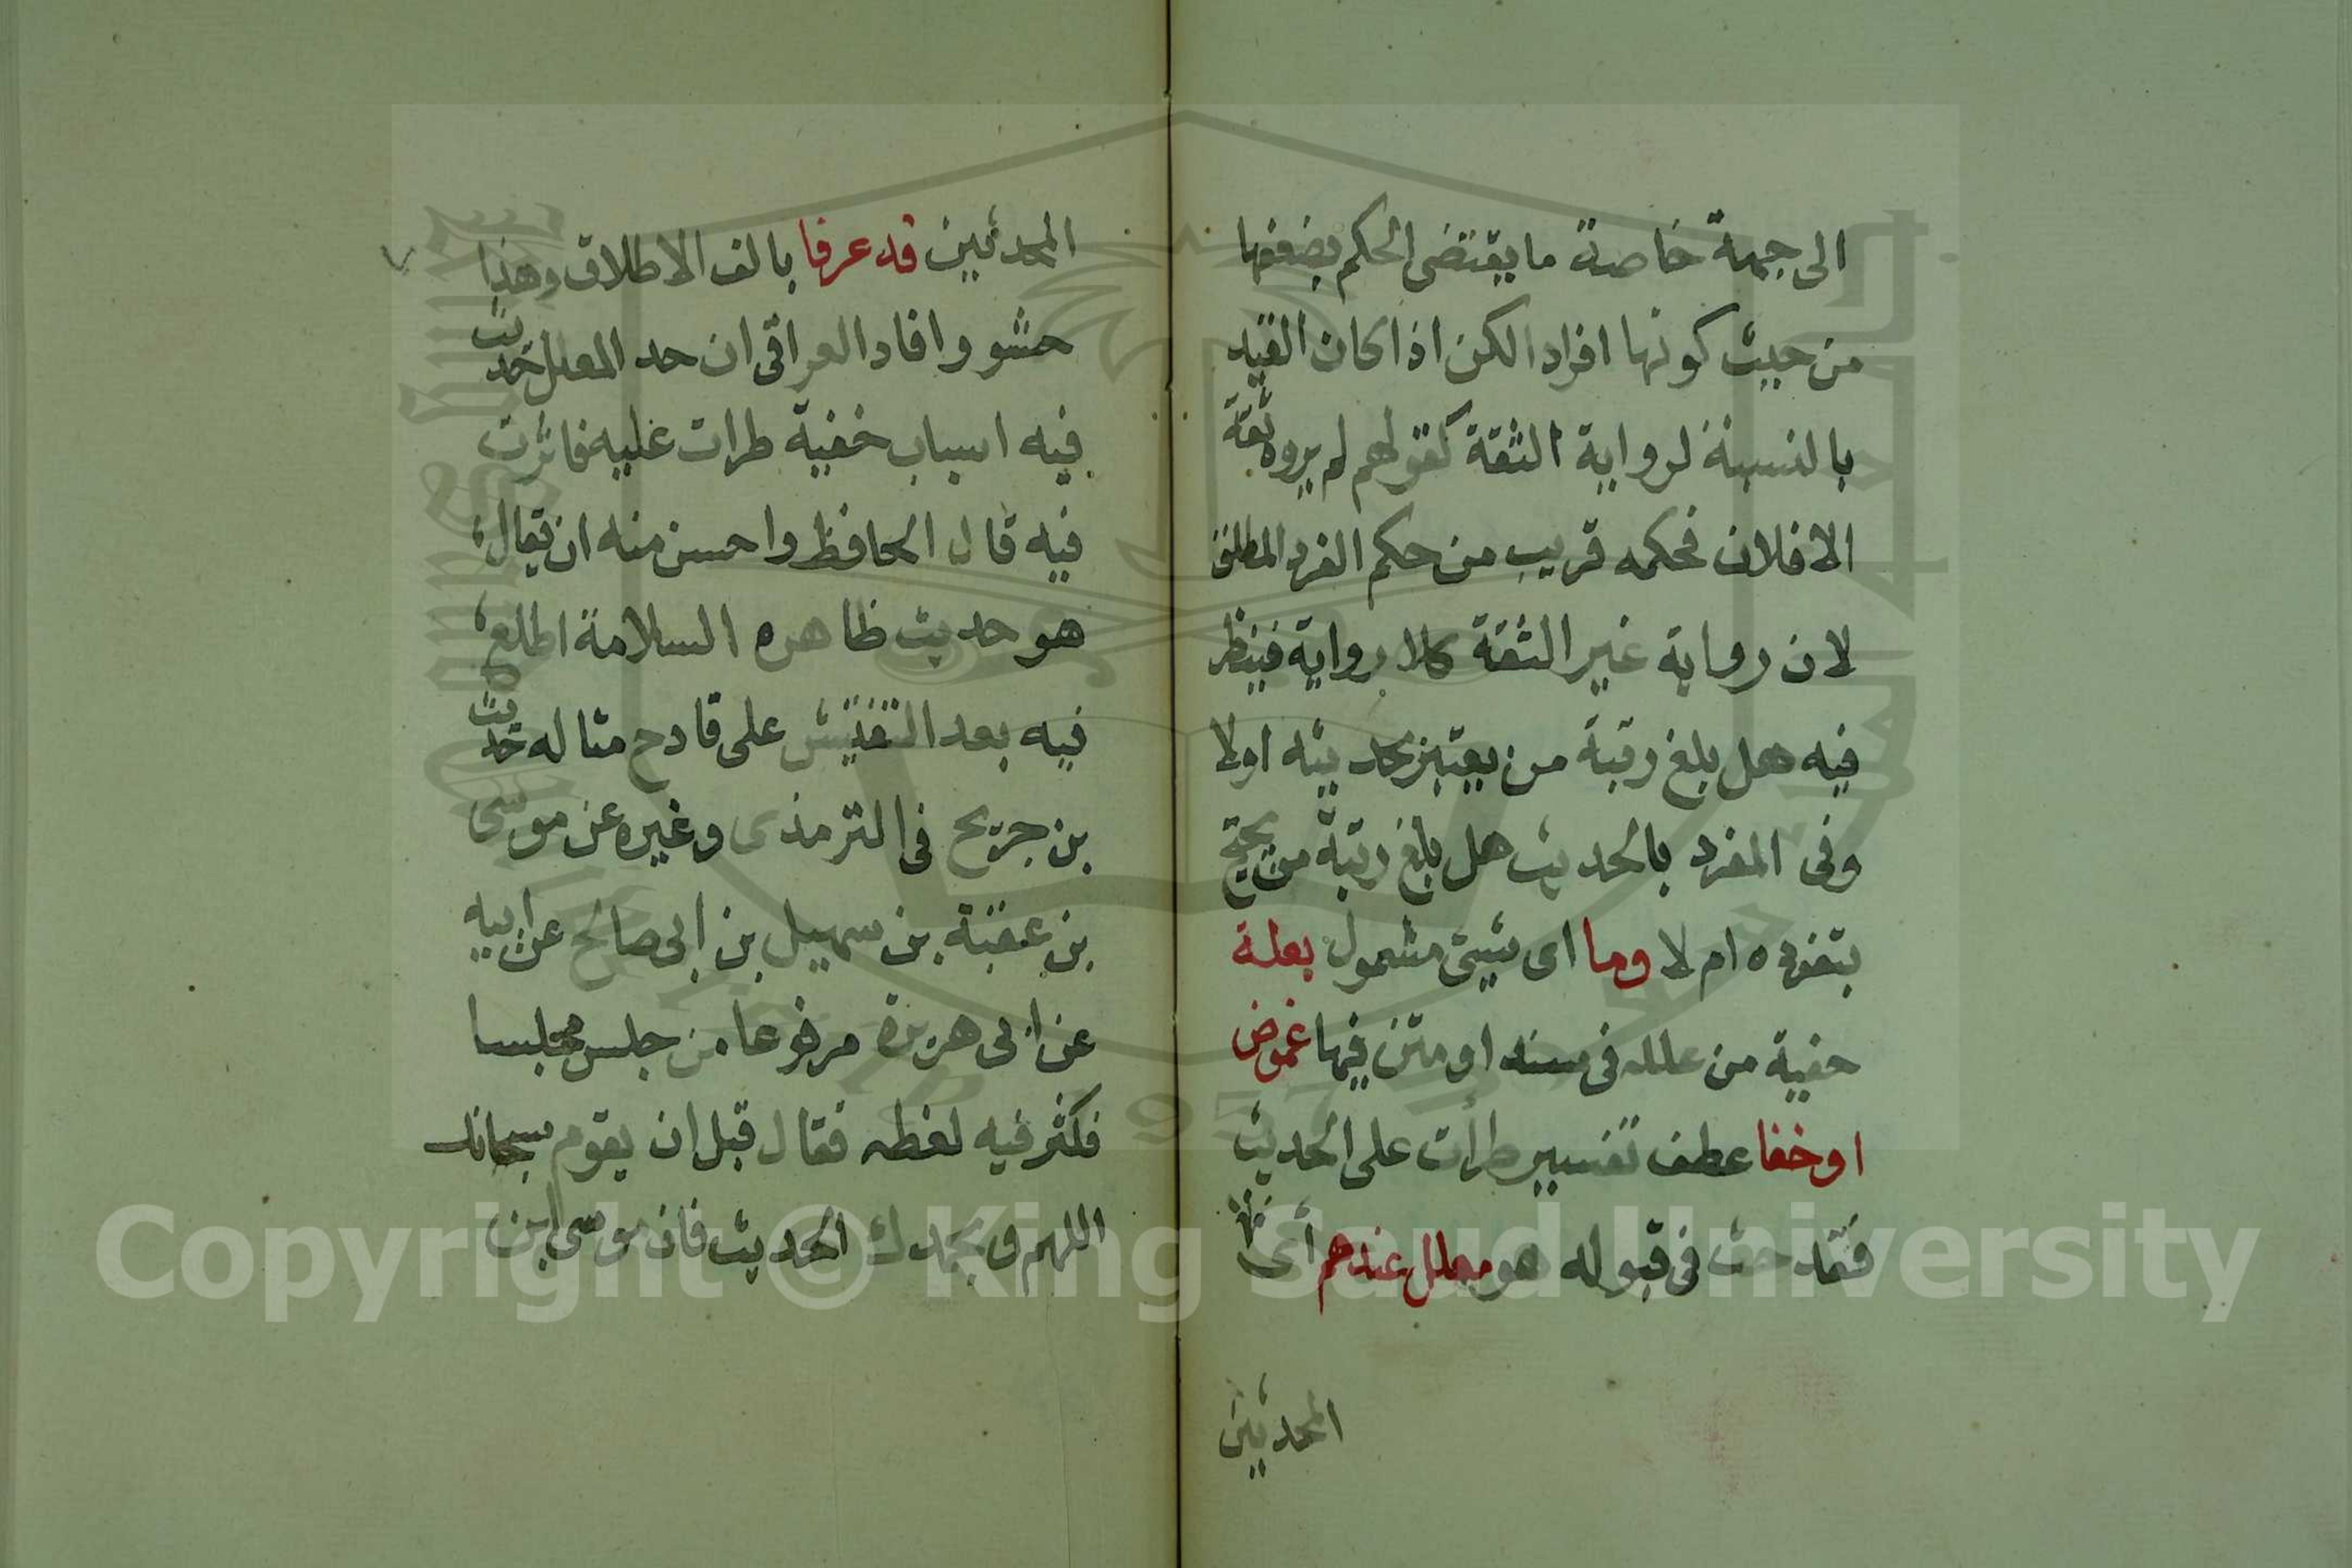 الى جهة خاصة ما يقتضى الحكم بضعفها
من حيث كونها افراد الكن اذا كان القيد
بالنسبة لرواية الثقة كقولهم لم يروه ثقة
الا فلان فحكمه قريب من حكم الفرد المطلق
لان رواية غير الثقة كلا رواية فينظر
فيه هل بلغ رتبة من يعتبر بحديثه اولا
وفى المفرد بالحديث هل بلغ رتبة من يحتج
بتفرده ام لا وما اى شيئ مشمول بعلة
خفية من علله فى سند او متن فيها غموض
او خفا عطف تفسير طرأت على الحديث
فقدحت فى قبوله هو معلل عندهم أى
المحدثين
المحدثين قد عرفا بالف الاطلاق وهذا
حشو وافاد العراقى ان حد المعلل حديث
فيه اسباب خفية طرات عليه فاثرت
فيه قال الحافظ واحسن منه ان يقال
هو حديث ظاهره السلامة اطلع
فيه بعد التفتيش على قادح مثاله حديث
بن جريج فى الترمذى وغيره عن موسى
بن عقبة بن سهيل بن ابى صالح عن ابيه
عن ابى هريرة مرفوعا من جلس مجلسا
فكثر فيه لغطه فقال قبل ان يقوم سبحانك
اللهم وبحمدك الحديث فان موسى ابن
Copyright © King Saud University